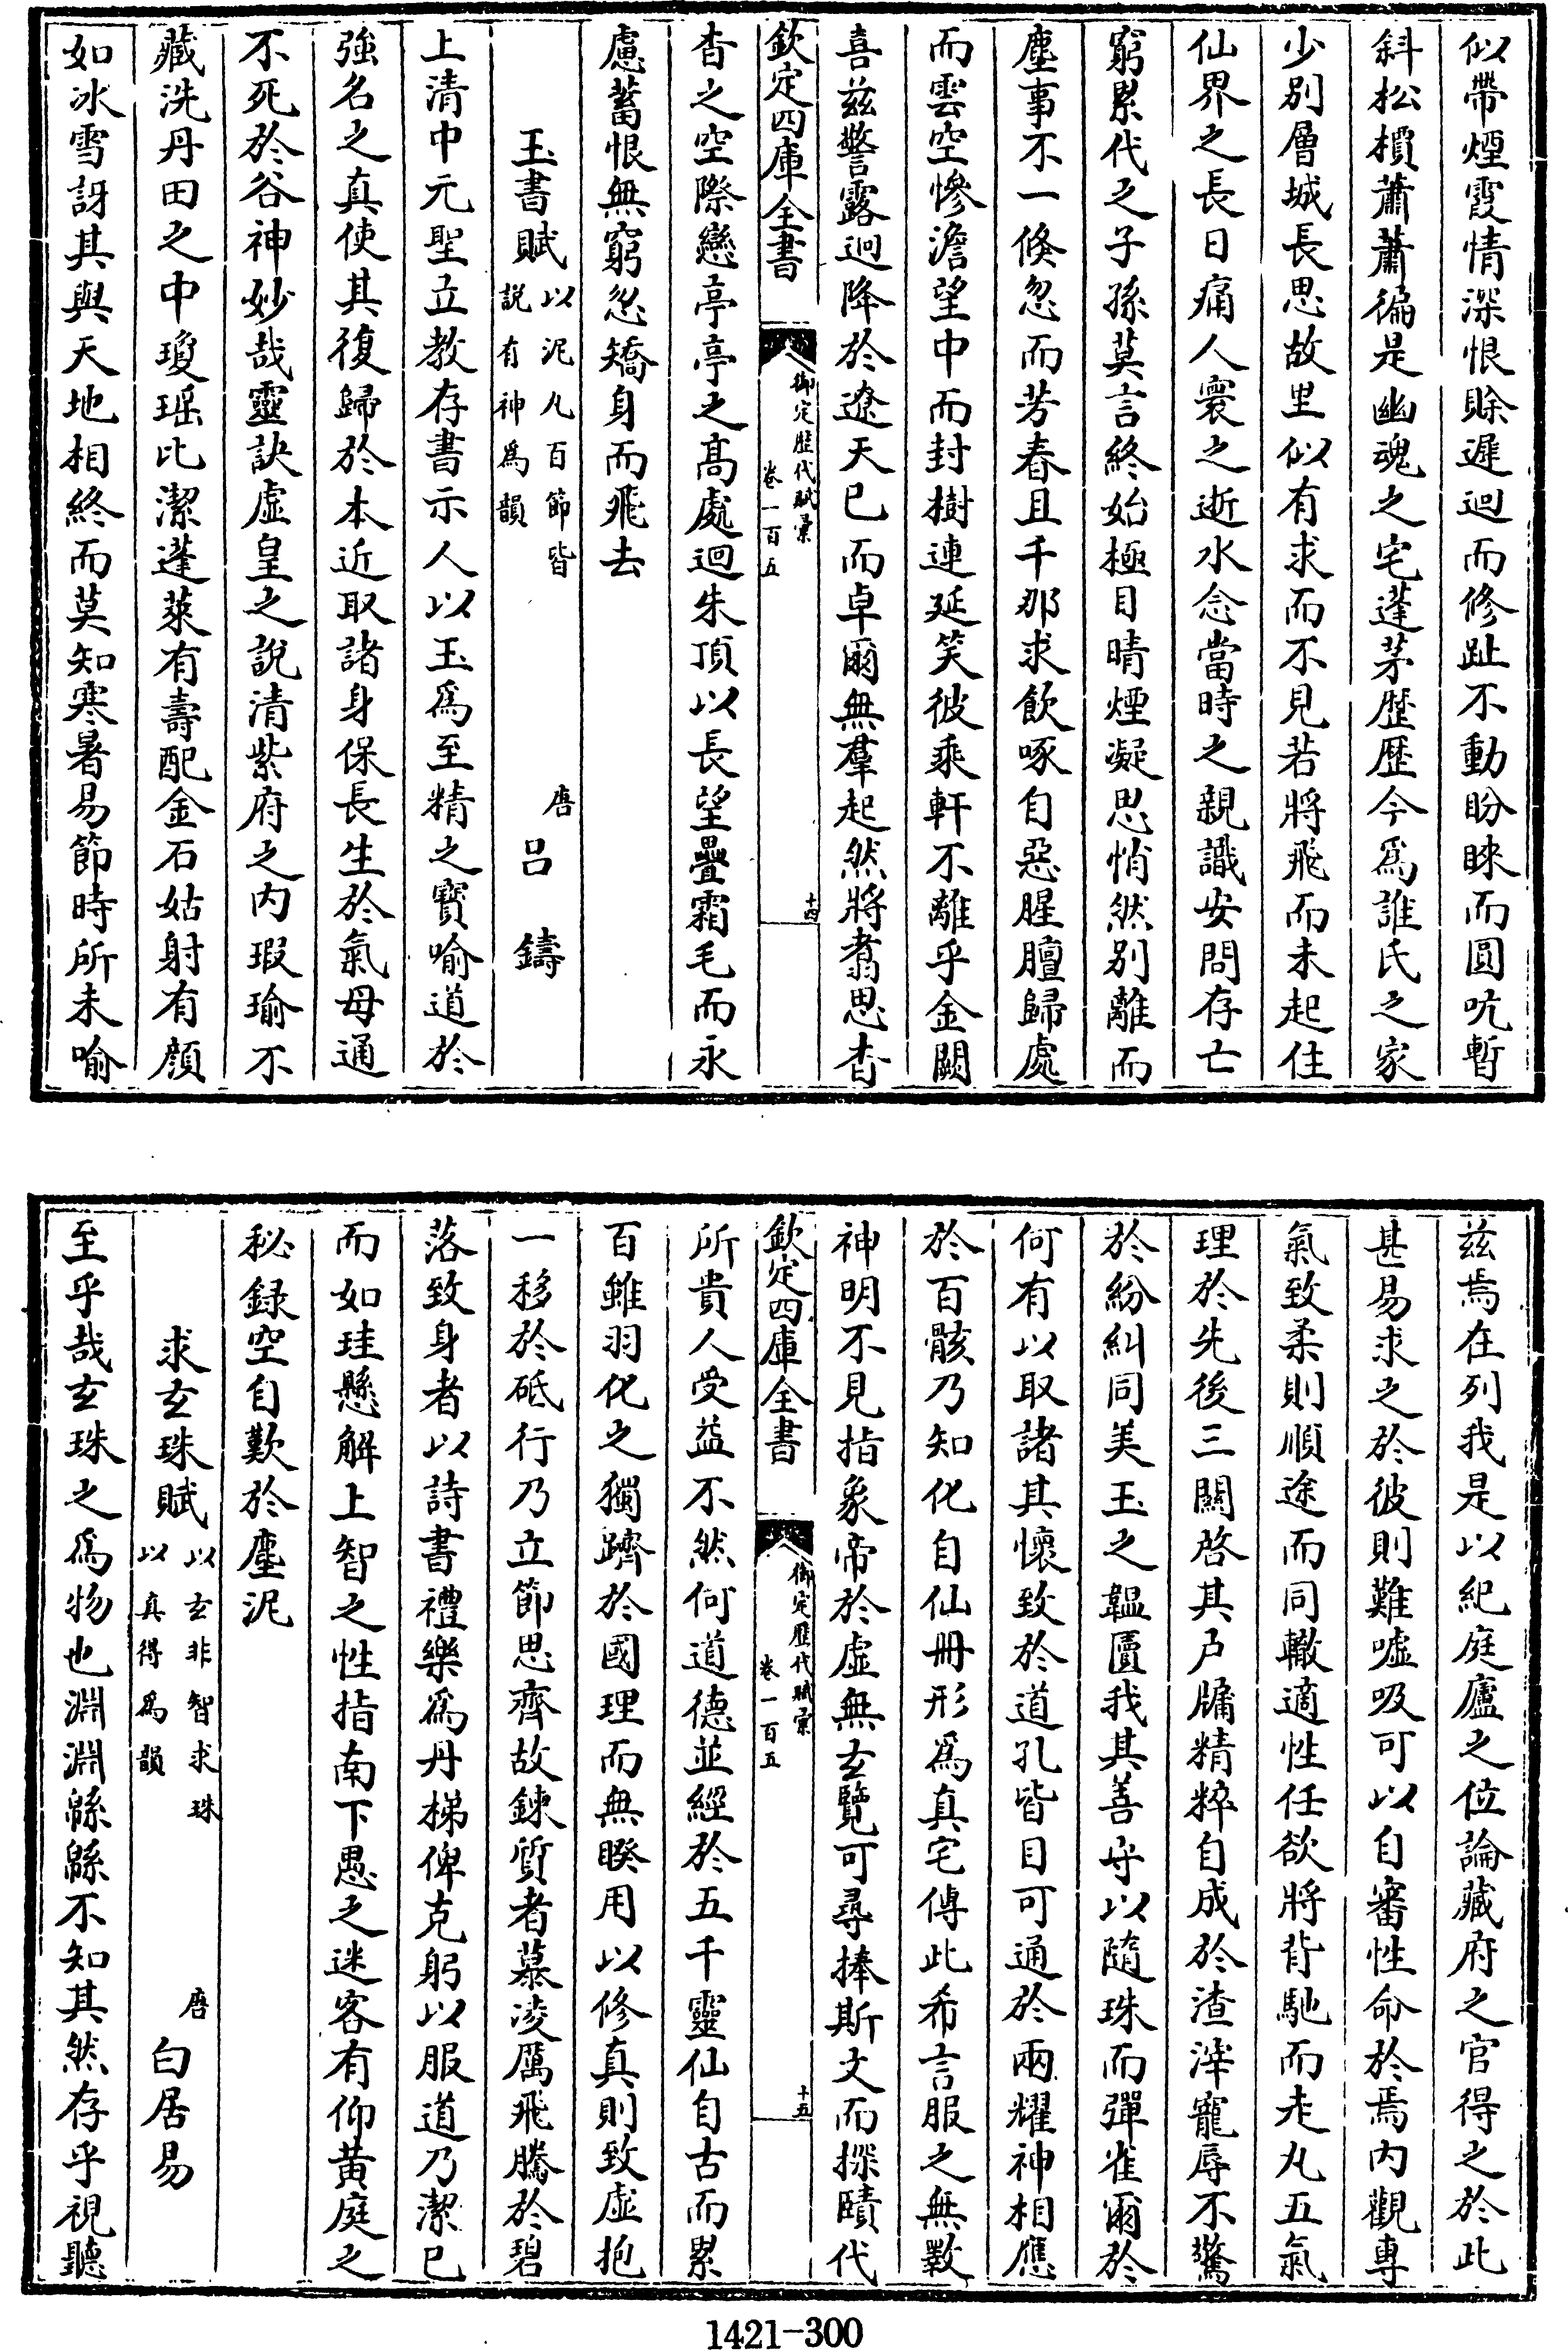 似帶煙霞情深恨賒遲迴而修趾不動盼睞而圓吭暫
斜松檟蕭蕭徧是幽魂之宅蓬茅歷歷今爲誰氏之家
少别層城長思故里似有求而不見若將飛而未起住
仙界之長日痛人寰之逝水念當時之親識安問存亡
窮累代之子孫莫言終始極目晴煙凝思悄然别離而
塵事不一倐忽而芳春且千那求飲啄自惡腥膻歸處
而雲空慘澹望中而封樹連延笑彼乘軒不離乎金闕
喜兹警露迴降於遼天已而卓爾無羣起然將翥思杳
欽定四庫全書
御定歷代賦彙
卷一百五
十四
杳之空際戀亭亭之髙處迴朱頂以長望疊霜毛而永
慮蓄恨無窮忽矯身而飛去
玉書賦
以泥丸百節皆
説有神爲韻
唐
吕鑄
上清中元聖立教存書示人以玉爲至精之寳喻道於
強名之真使其復歸於本近取諸身保長生於氣母通
不死於谷神妙哉靈訣虚皇之説清紫府之内瑕瑜不
藏洗丹田之中瓊瑶比潔蓬萊有壽配金石姑射有顔
如冰雪訝其與天地相終而莫知寒暑易節時所未喻
兹焉在列我是以紀庭廬之位論藏府之官得之於此
甚易求之於彼則難噓吸可以自審性命於焉内觀專
氣致柔則順途而同轍適性任欲將背馳而走丸五氣
理於先後三關啓其戸牖精粹自成於渣滓寵辱不驚
於紛糾同美玉之韞匵我其善守以隨珠而彈雀爾於
何有以取諸其懷致於道孔皆目可通於兩耀神相應
於百骸乃知化自仙冊形爲真宅傳此希言服之無斁
神明不見指象帝於虚無玄覽可尋捧斯文而探賾代
欽定四庫全書
御定歷代賦彙
卷一百五
十五
所貴人受益不然何道德並經於五千靈仙自古而累
百雖羽化之獨躋於國理而無暌用以修真則致虚抱
一移於砥行乃立節思齊故鍊質者慕凌厲飛騰於碧
落致身者以詩書禮樂爲丹梯俾克躬以服道乃潔已
而如珪懸解上智之性指南下愚之迷客有仰黄庭之
秘録空自歎於塵泥
求玄珠賦
以玄非智求珠
以真得爲韻
唐
白居易
至乎哉玄珠之爲物也淵淵緜緜不知其然存乎視聽
1421-300